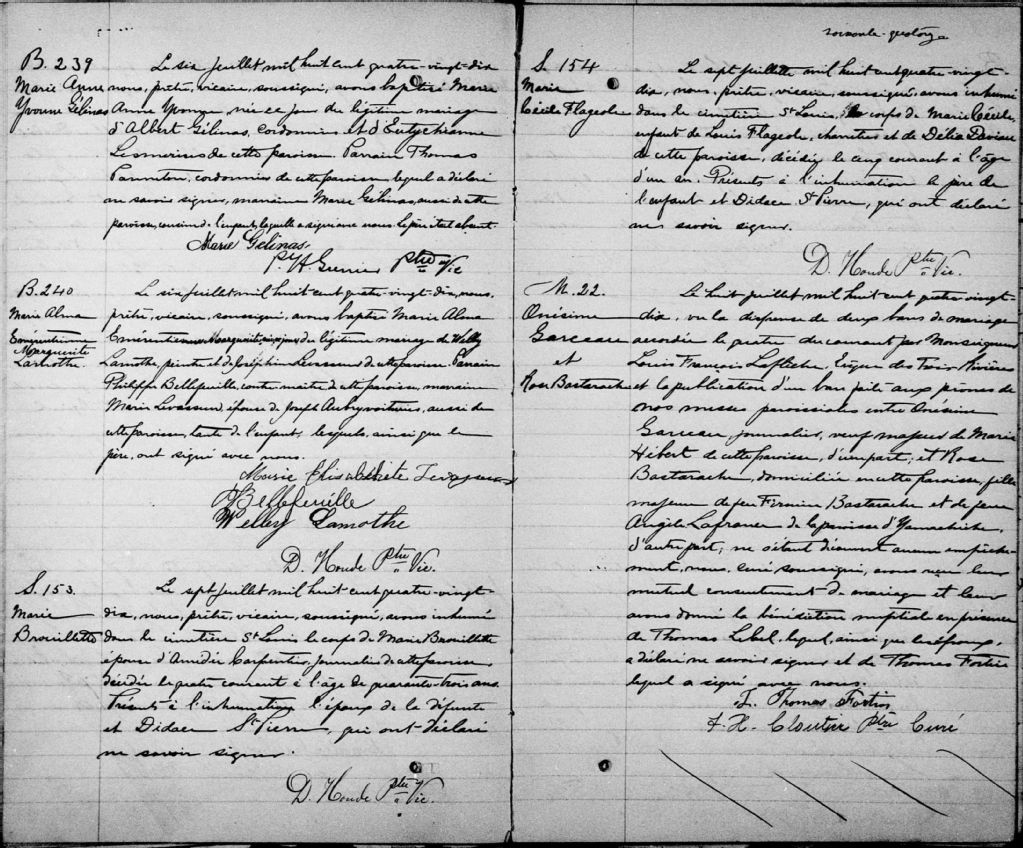 B. 239
Marie Anne
Yvonne Gélinas
Le six juillet mil huit cent quatre-vingt-dix
nous, prêtre, vicaire, soussigné, avons baptisé Marie
Anne Yvonne, née ce jour du légitime mariage
d'Albert Gélinas, cordonnier et d'Eutychianne
Lesmerises de cette paroisse. Parrain Thomas
Panneton, cordonnier de cette paroisse lequel a déclaré
ne savoir signer, marraine Marie Gélinas, aussi de cette
paroisse, cousine de l'enfant, laquelle a signé avec nous. Le père était absent.
Marie Gélinas
Ptre Vic
B. 240
Marie Alma
Marguerite
Lamothe.
Le six juillet mil huit cent quatre-vingt-dix, nous,
prêtre, vicaire, soussigné, avons baptisé Marie Alma
Marguerite, du légitime mariage de Welly
Lamothe, peintre et de Joséphine Levasseur de cette paroisse. Parrain
Philippe Bellefeuille, contre-maître de cette paroisse, marraine
Marie Levasseur, épouse de Joseph Aubry voiturier, aussi de
cette paroisse, tante de l'enfant, lesquels, ainsi que le
père, ont signé avec nous.
Marie Elisabethe Levasseur
Bellefeuille
Welley Lamothe
D. Houde Ptre Vic.
S. 153.
Marie
Brouillette
Le sept juillet mil huit cent quatre-vingt-
dix, nous, prêtre, vicaire, soussigné, avons inhumé
dans le cimetière St Louis le corps de Marie Brouillette
épouse d'Amédée Carpentier, journalier de cette paroisse
décédée le quatre courant à l'âge de quarante-trois ans.
Présents à l'inhumation l'époux de la défunte
et Didace St Pierre, qui ont déclaré
ne savoir signer.
D. Houde Ptre Vic.
soixante-quatorze
S. 154
Marie
Cécile Flageole
Le sept juillet mil huit cent quatre vingt-
dix, nous, prêtre, vicaire, soussigné, avons inhumé
dans le cimetière St Louis, le corps de Marie Cécile,
enfant de Louis Flageole, charretier et de Délia Daviau
de cette paroisse, décédée le cinq courant à l'âge
d'un an. Présents à l'inhumation le père de
l'enfant et Didace St Pierre, qui ont déclaré
ne savoir signer.
D. Houde Ptre Vic.
M. 22.
Onésime
Garceau
et
Rose Bastarache
Le huit juillet mil huit cent quatre vingt-
dix, vu la dispense de deux bans de mariage
accordée le quatre du courant par Monseigneur
Louis François Laflèche, Evêque des Trois-Rivières
et la publication d'un ban faite aux prônes de
nos messes paroissiales entre Onésime
Garceau journalier, veuf majeur de Marie
Hébert de cette paroisse, d'une part; et Rose
Bastarache, domiciliée en cette paroisse, fille
majeure de feu Firmin Bastarache et de feue
Angèle Lafrance de la paroisse d'Yamachiche,
d'autre part; ne s'étant découvert aucun empêche-
ment, nous, curé soussigné, avons reçu leur
mutuel consentement de mariage et leur
avons donné la bénédiction nuptiale en présence
de Thomas Lebel, lequel, ainsi que les époux,
a déclaré ne savoir signer et de Thomas Fortier
lequel a signé avec nous.
Thomas Fortier
J. H. Cloutier Ptre Curé